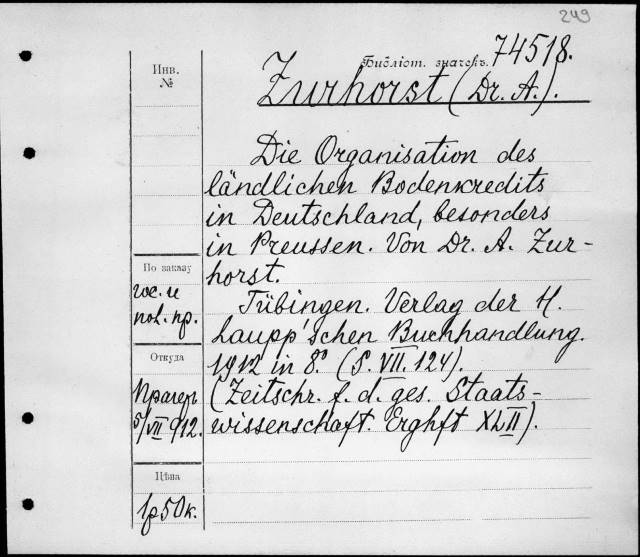 249
Библіот. значекъ. 74518.
Инв.
№
Zurhorst (Dr. A.).
Die Organisation des
ländlichen Bodenkredits
in Deutschland, besonders
in Preussen. Von Dr. A. Zur-
horst.
По заказу
гос. и
пол. пр.
Tübingen. Verlag der H.
Laupp'schen Buchhandlung.
1912 in 8º. (S. VII. 124).
(Zeitschr. f. d. ges. Staats-
wissenschaft. Erghft XLII).
Откуда
Прагеръ
5/VII 912.
Цѣна
1р 50к.